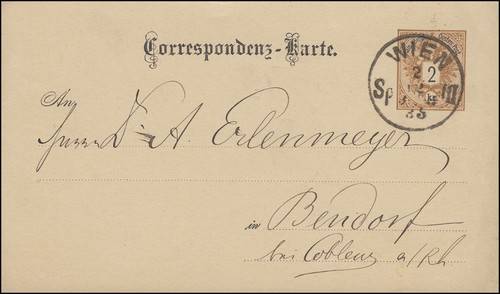 Correspondenz-Karte.
WIEN
2
2
Sp III
83
An
Herrn Dr. A. Erlenmeyer
in Bendorf
bei Coblenz a/Rh